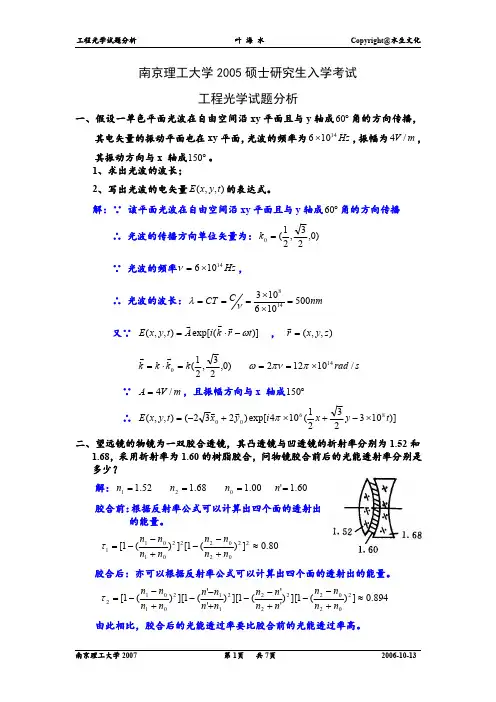 工程光学试题分析 叶 海 水 Copyright@水生文化
南京理工大学 2005 硕士研究生入学考试
工程光学试题分析
一、假设一单色平面光波在自由空间沿 xy 平面且与 y 轴成60°角的方向传播，
其电矢量的振动平面也在 xy 平面,光波的频率为 6×10^{14}Hz ,振幅为 4V/m ,
其振动方向与 x 轴成150°。
1、求出光波的波长；
2、写出光波的电矢量E(x,y,t)的表达式。
解：∵ 该平面光波在自由空间沿 xy 平面且与 y 轴成60°角的方向传播
∴ 光波的传播方向单位矢量为: k_0 = (1/2, √3/2, 0)
∵ 光波的频率ν = 6×10^{14}Hz ,
∴ 光波的波长: λ = CT = C/ν = (3×10^8)/(6×10^{14}) = 500nm
又∵ E(x,y,t) = A exp[i(k·r − ωt)] , r = (x,y,z)
k = k·k_0 = k(1/2, √3/2, 0) ω = 2πν = 12π×10^{14} rad/s
∵ A = 4V/m , 且振幅方向与 x 轴成150°
∴ E(x,y,t) = (−2√3x_0 + 2y_0) exp[i4π×10^6(1/2 x + √3/2 y − 3×10^8 t)]
二、望远镜的物镜为一双胶合透镜，其凸透镜与凹透镜的折射率分别为 1.52 和
1.68，采用折射率为 1.60 的树脂胶合，问物镜胶合前后的光能透射率分别是
多少？
解: n_1 = 1.52 n_2 = 1.68 n_0 = 1.00 n' = 1.60
胶合前:根据反射率公式可以计算出四个面的透射出
的能量。
τ_1 = [1 − ((n_1 − n_0)/(n_1 + n_0))^2]^2[1 − ((n_2 − n_0)/(n_2 + n_0))^2]^2 ≈ 0.80
1.52 1.68
1.60
胶合后：亦可以根据反射率公式可以计算出四个面的透射出的能量。
τ_2 = [1 − ((n_1 − n_0)/(n_1 + n_0))^2][1 − ((n' − n_1)/(n' + n_1))^2][1 − ((n_2 − n')/(n_2 + n'))^2][1 − ((n_2 − n_0)/(n_2 + n_0))^2] ≈ 0.894
由此相比，胶合后的光能透过率要比胶合前的光能透过率高。
南京理工大学 2007 第 1页 共 7页 2006-10-13